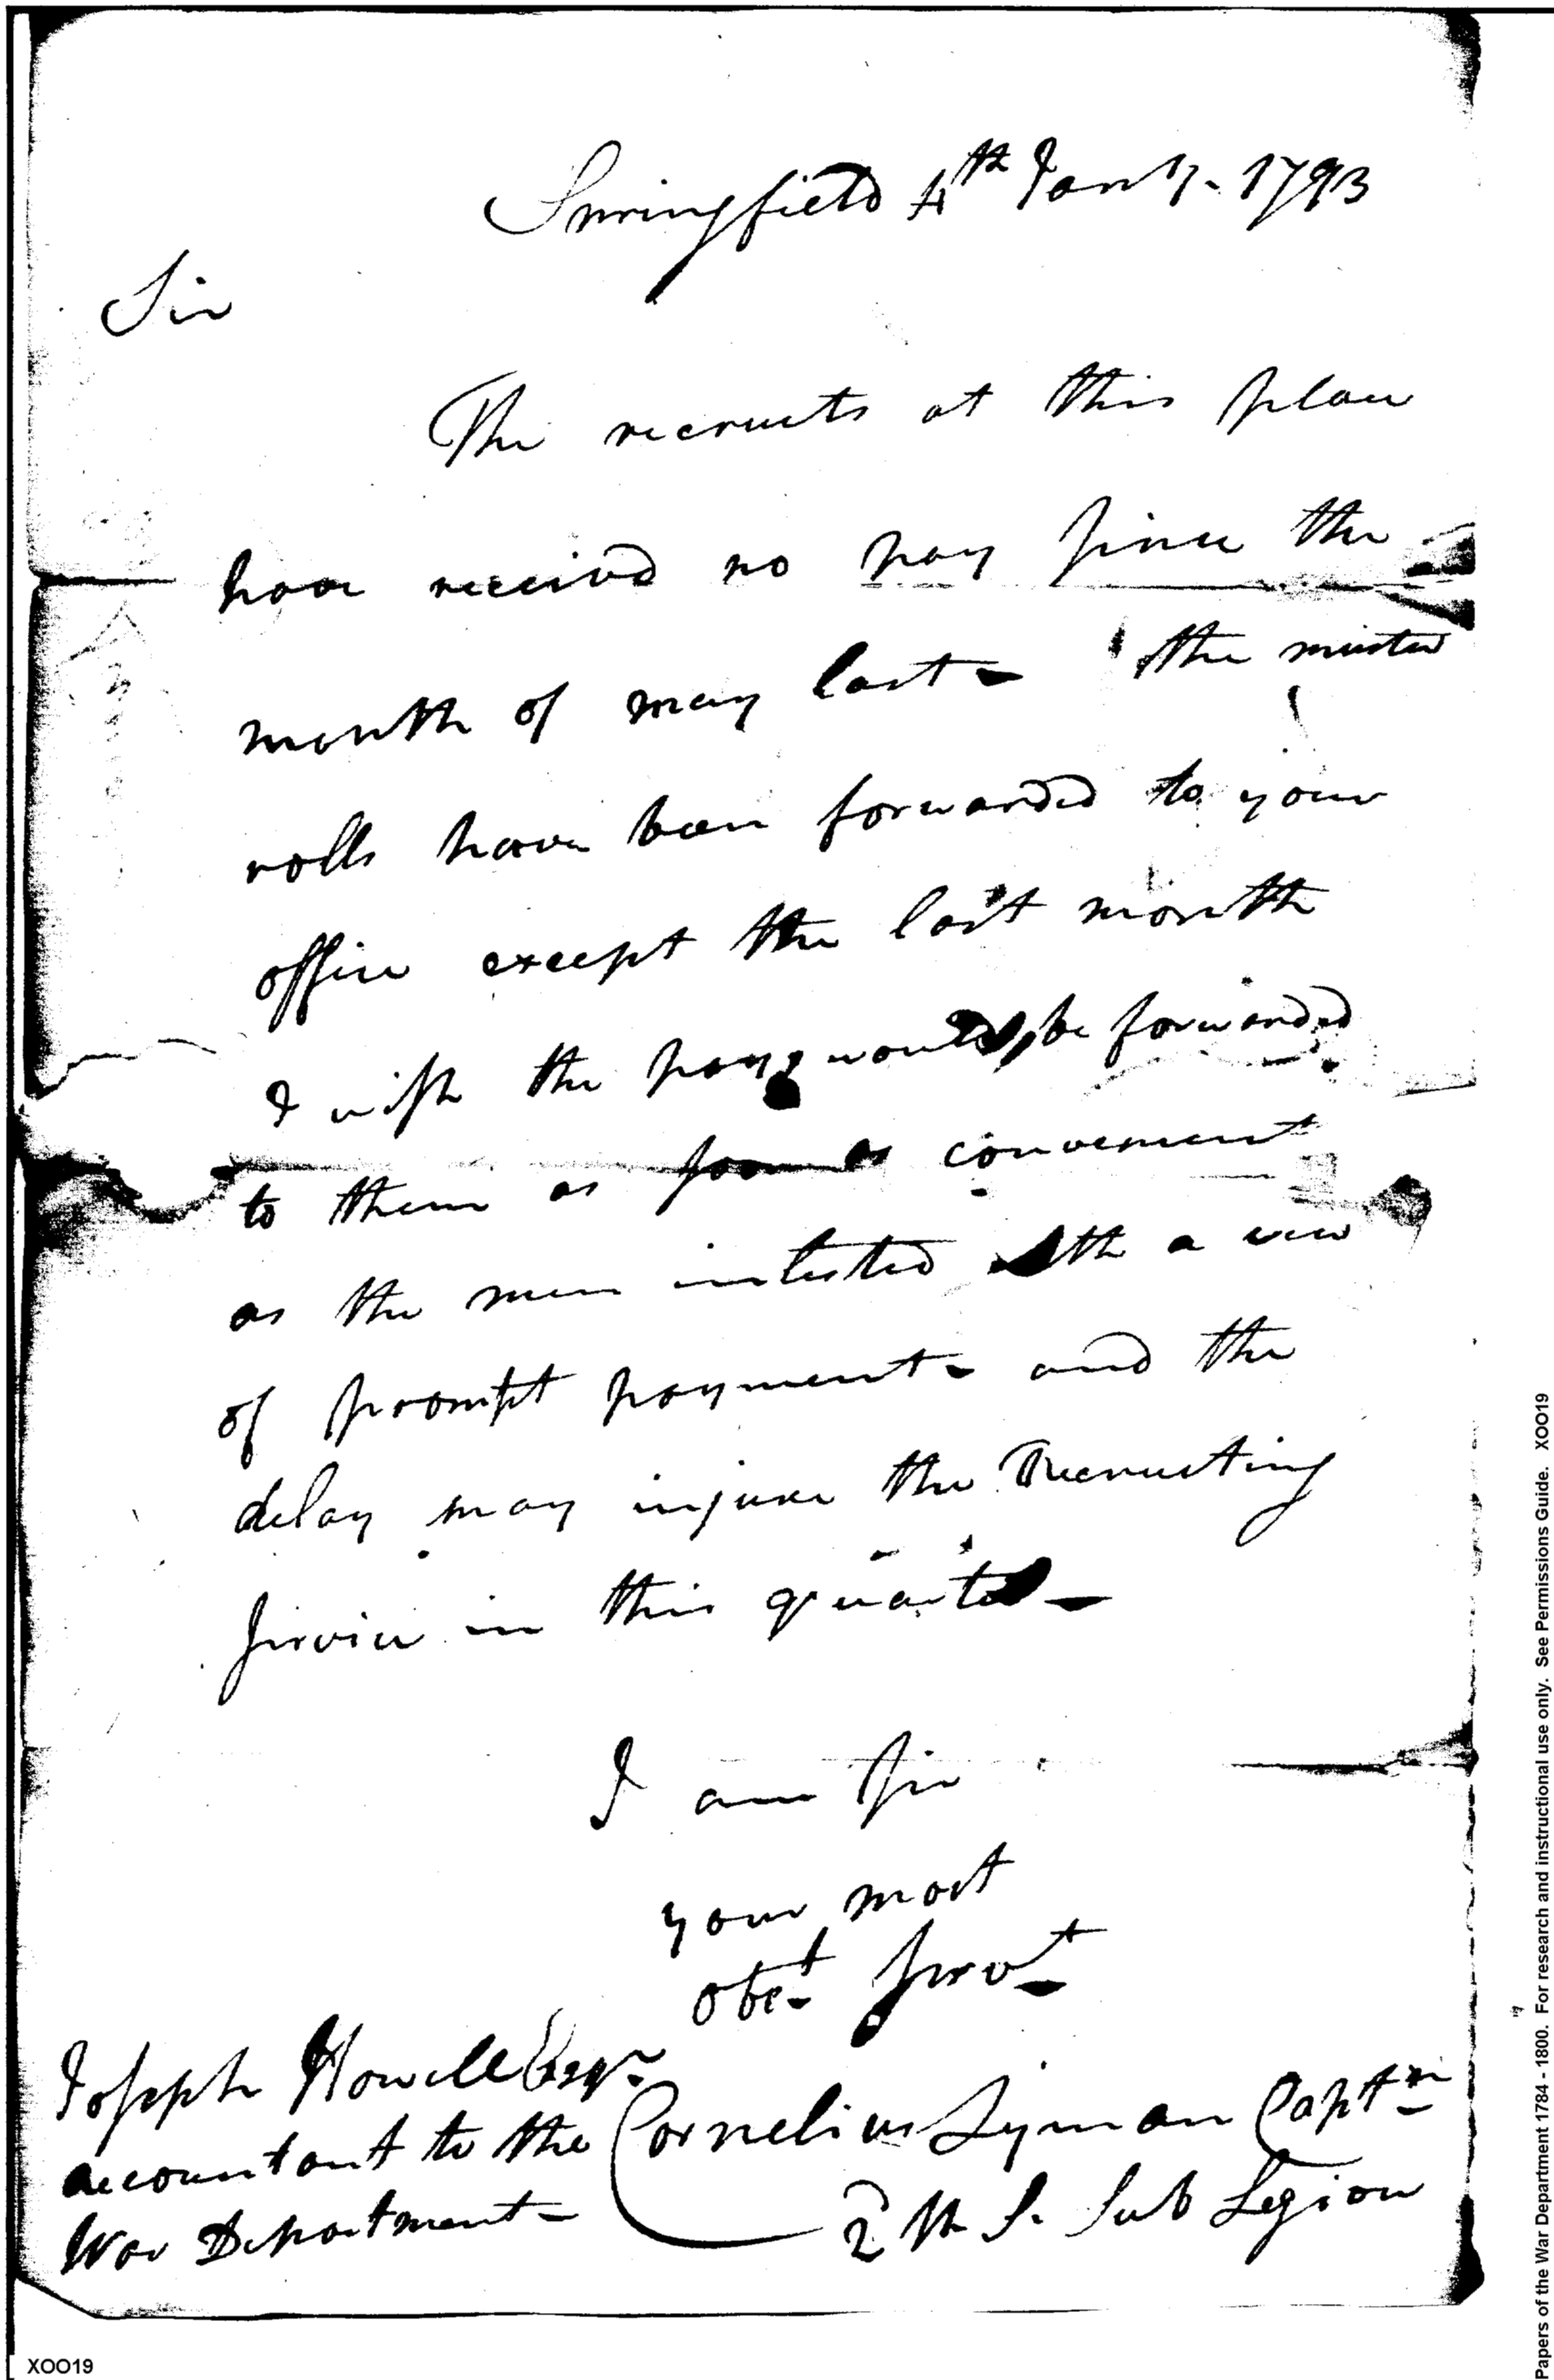 Springfield 4th Jany. 1793
Sir
The recruits at this place
have receivd no pay since the
month of may last - the muster
rolls have been forwarded to your
office except the last month
I wish the pay would be forwarded
to them as soon as convenient
as the men inlisted with a view
of prompt payment - and the
delay may injure the Recruiting
service in this quarter -
I am Sir
your most
obet. servt
Joseph Howell Esqr.
accountant to the
War Department -
Cornelius Lyman Captn
2d U. S. Sub Legion
XOO19
Papers of the War Department 1784 - 1800. For research and instructional use only. See Permissions Guide. XOO19